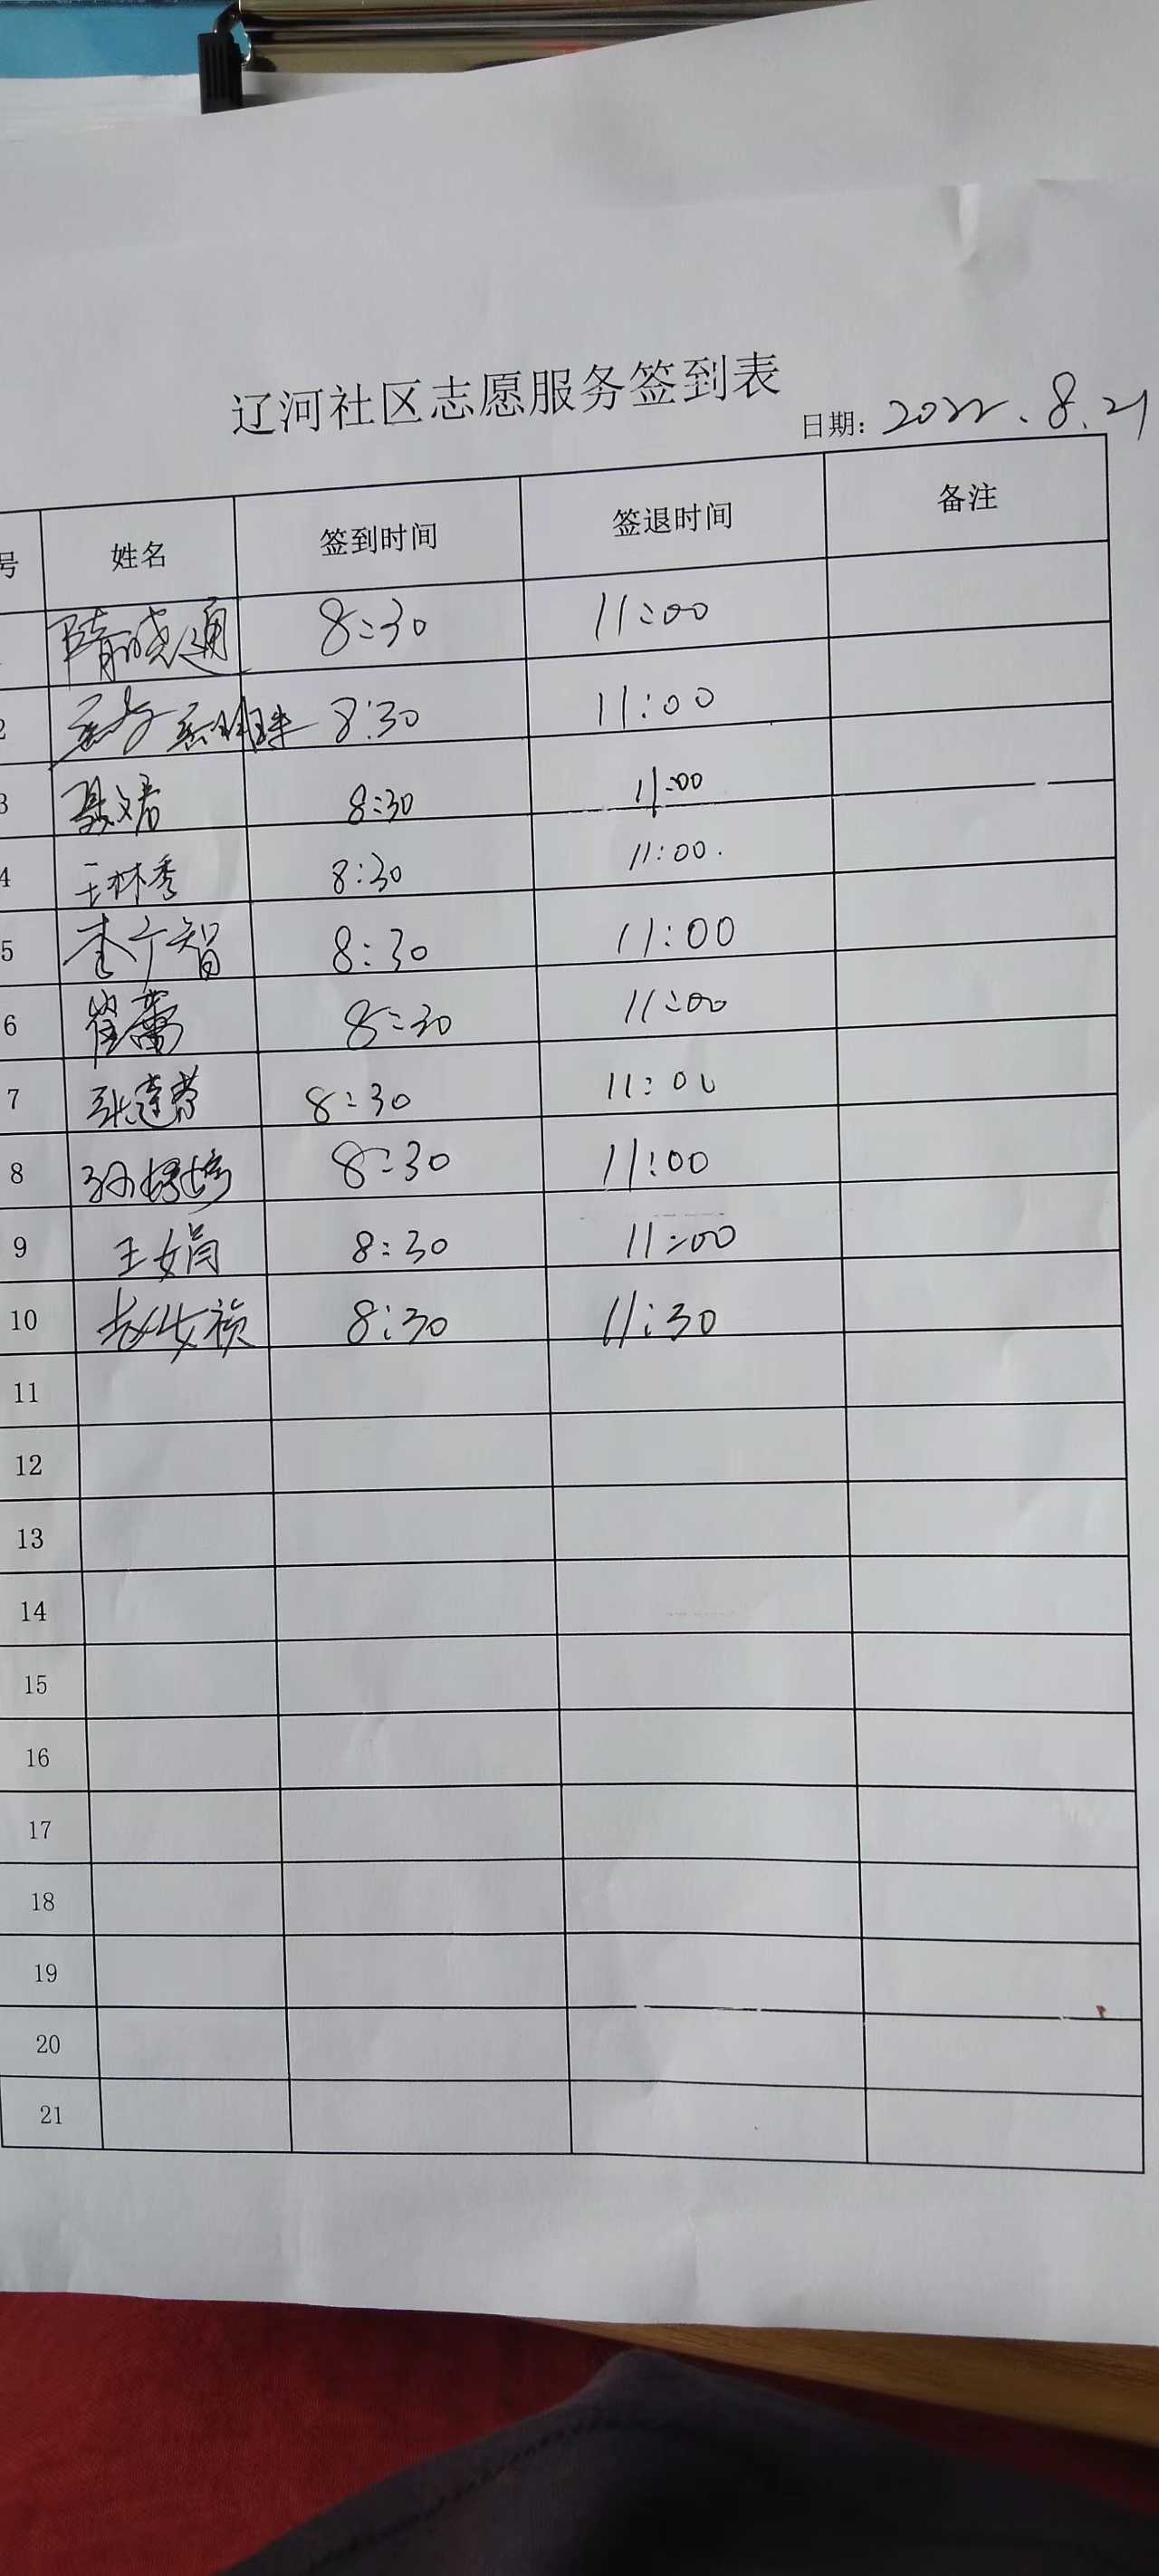 辽河社区志愿服务签到表
日期: 2022.8.21
号 姓名 签到时间 签退时间 备注
隋晓通 8:30 11:00
2 8:30 11:00
3 聂文君 8:30 11:00
4 王林秀 8:30 11:00.
5 李广智 8:30 11:00
6 崔蕾 8:30 11:00
7 8:30 11:00
8 孙婷婷 8:30 11:00
9 王娟 8:30 11:00
10 赵女祯 8:30 11:30
11
12
13
14
15
16
17
18
19
20
21